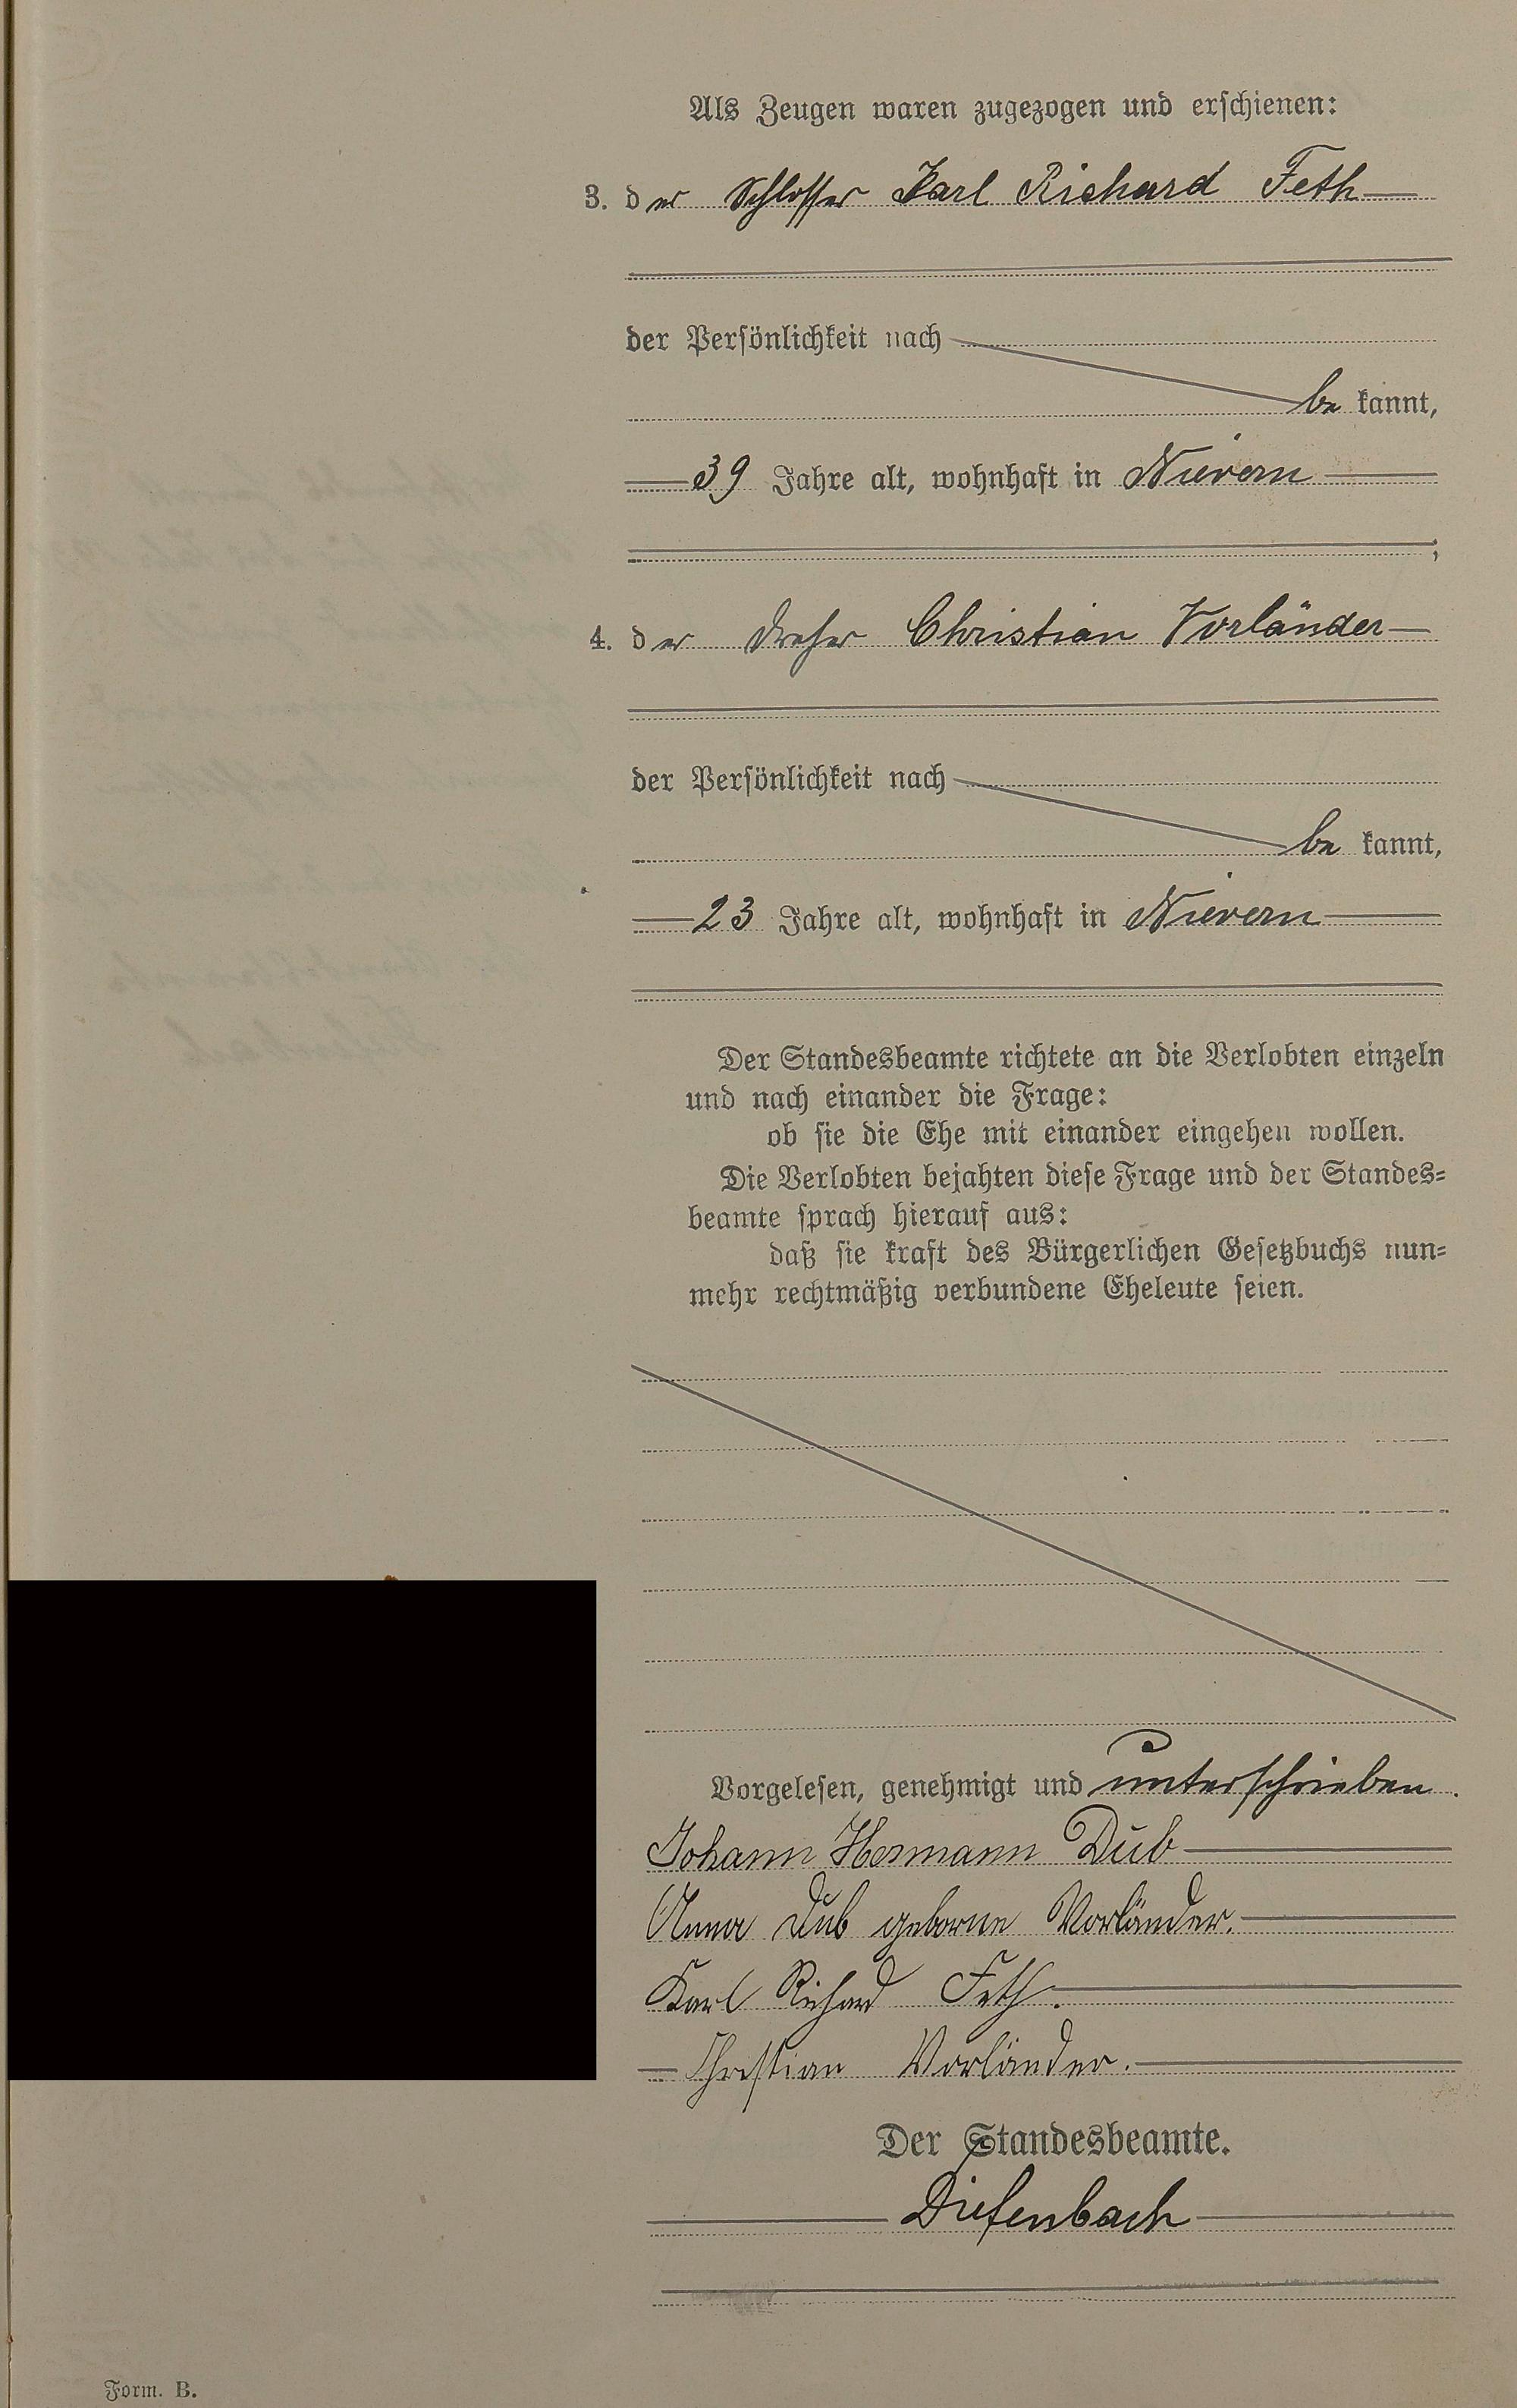 Als Zeugen waren zugezogen und erschienen:
3. der Schlosser Karl Richard Feth
der Persönlichkeit nach
be kannt,
39 Jahre alt, wohnhaft in Nievern
;
4. der Dreher Christian Vorländer
der Persönlichkeit nach
be kannt,
23 Jahre alt, wohnhaft in Nievern
Der Standesbeamte richtete an die Verlobten einzeln
und nach einander die Frage:
ob sie die Ehe mit einander eingehen wollen.
Die Verlobten bejahten diese Frage und der Standes=
beamte sprach hierauf aus:
daß sie kraft des Bürgerlichen Gesetzbuchs nun=
mehr rechtmäßig verbundene Eheleute seien.
Vorgelesen, genehmigt und unterschrieben.
Johann Hermann Dub
Anna Dub geborne Vorländer.
Karl Richard Feth.
Christian Vorländer.
Der Standesbeamte.
Diefenbach
Form. B.